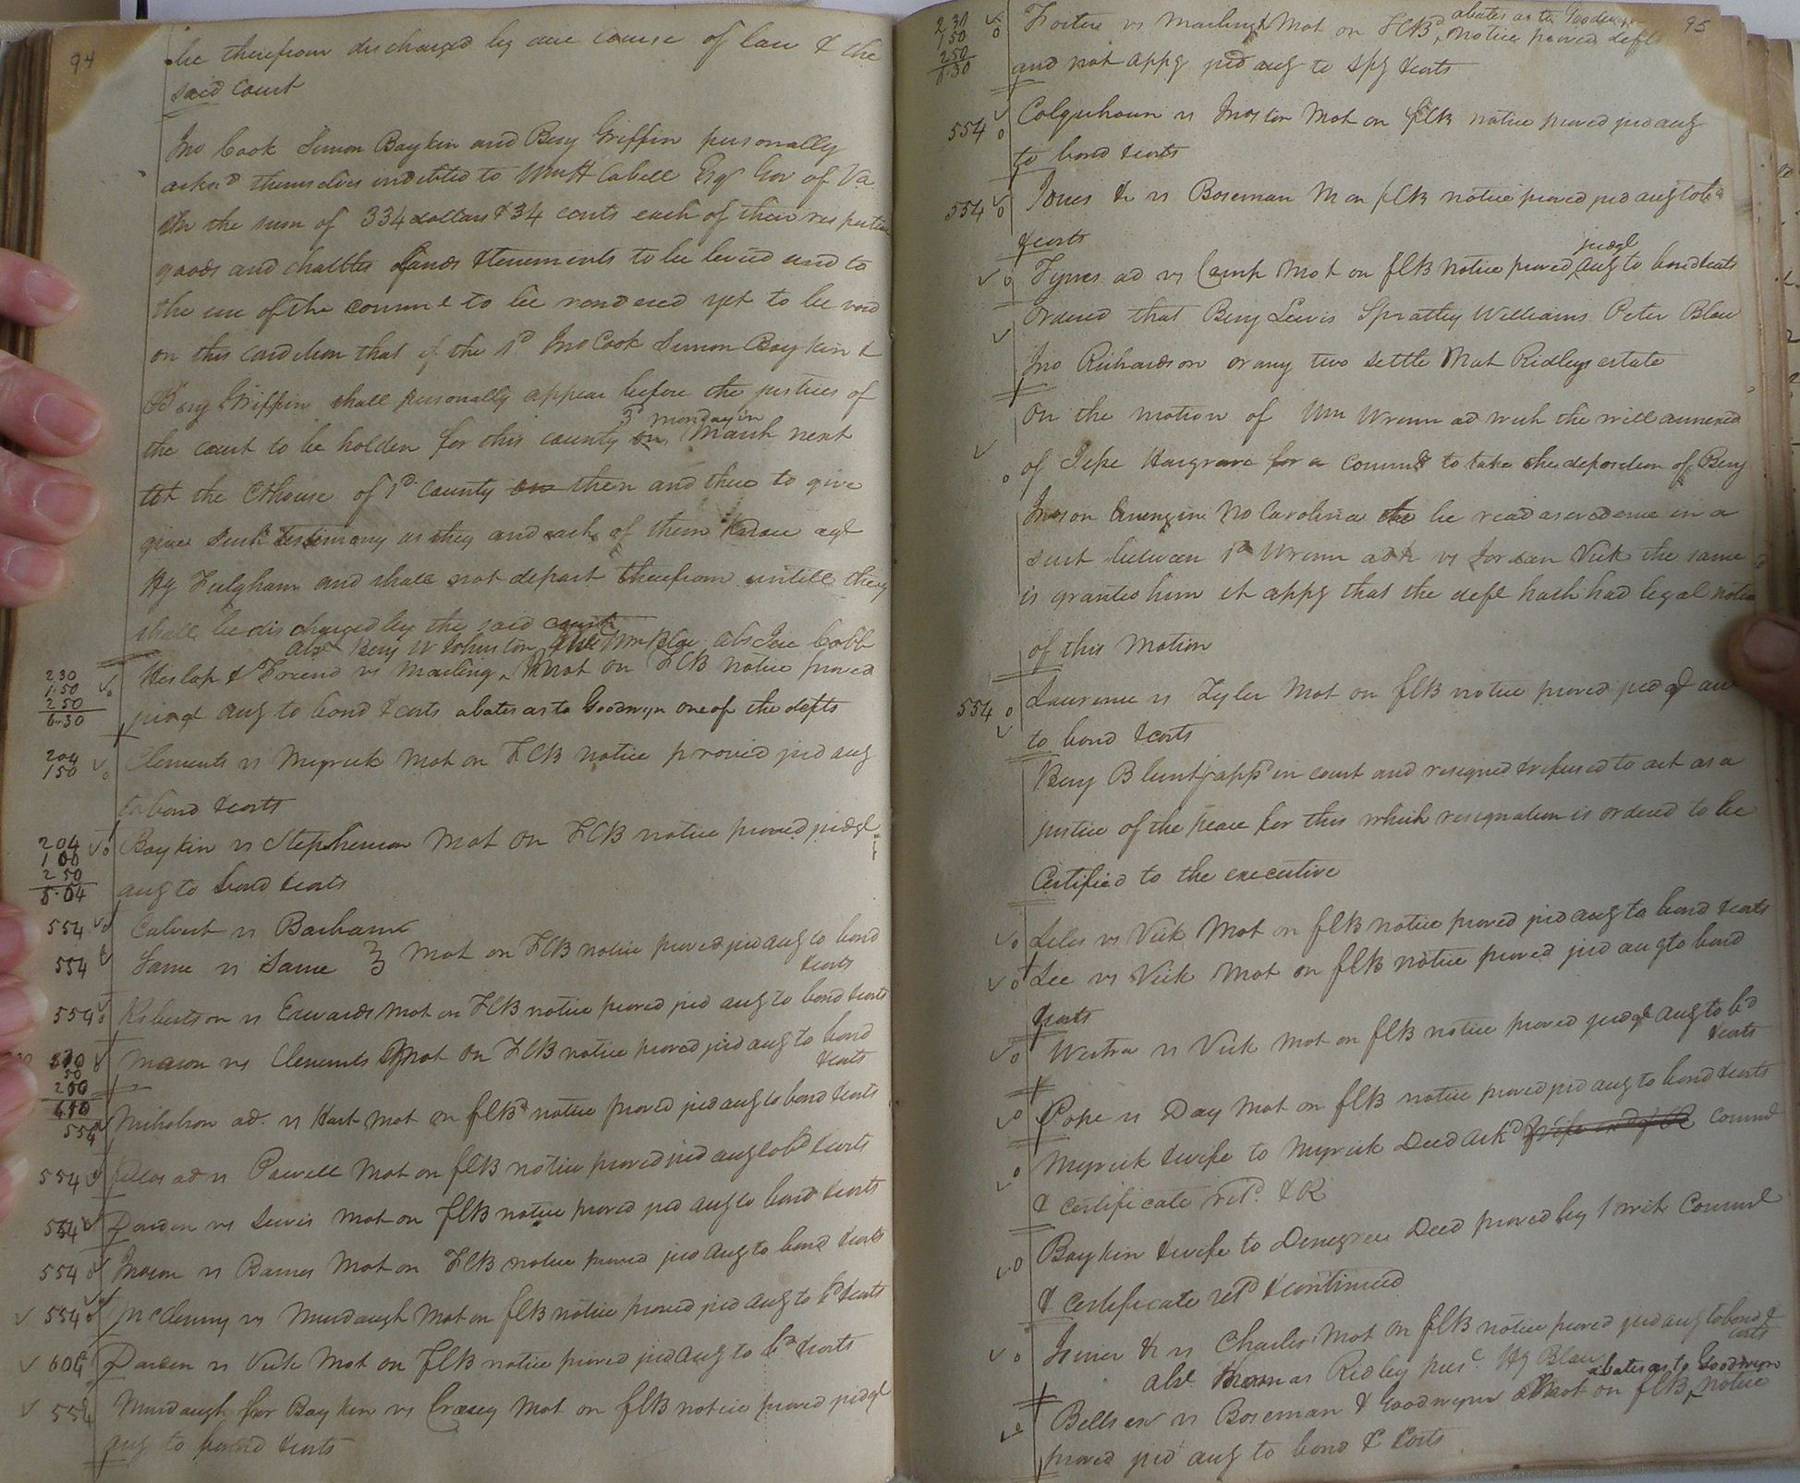 94
be therefrom discharged by due course of law & the
said court
Jno Cook Simon Boykin and Benj Griffin personally
ackd themselves indebted to Wm H Cabell Esqr Gov of Va
in the sum of 334 dollars & 34 cents each of their respective
goods and chattles Lands & tenements to be levied and to
the use of the commt to be rendered yet to be void
on this condition that if the sd Jno Cook Simon Boykin &
Benj Griffin shall personally appear before the justices of
3d monday in
the court to be holden for this county on March next
at the Cthouse of sd county on then and there to give
give such testimony as they and each of them know agt
Hy Fulgham and shall not depart therefrom untill they
shall be discharged by the said court
abs Benj W Johnston Wm Blow abs Jere Cobb
230
150
250
6.30
Heslop & Friend vs Mailing Mot on FCB notice proved
judgt aug to bond & costs abates as to Goodwyn one of the defts
204
150
Clements vs Myrick Mot on FCB notice proved jud aug
to bond & costs
204
100
250
5.04
Boykin vs Stephenson Mot on FCB notice proved judgt
aug to bond & costs
554 Calvert vs Barham
554 Same vs Same } Mot on FCB notice proved jud aug to bond
& costs
554 Robertson vs Edwards Mot on FCB notice proved jud aug to bond & costs
Mason vs Clements Mot on FCB notice proved jud aug to bond
& costs
200
6.50
554 Nicholson ad vs Hart Mot on FCB notice proved jud aug to bond & costs
554 ad vs Powell Mot on FCB notice proved jud aug to bd & costs
554 Darden vs Lewis Mot on FCB notice proved jud aug to bond & costs
554 Mason vs Barnes Mot on FCB notice proved jud aug to bond & costs
554 McClenny vs Murdaugh Mot on FCB notice proved jud aug to bd & costs
604 Darden vs Vick Mot on FCB notice proved jud aug to bd & costs
554 Murdaugh for Boykin vs Creasey Mot on FCB notice proved judgt
aug to bond & costs
95
230
150
250
6.30
abates as to Goodwyn
Foster vs Mailing Mot on FCB notice proved defts
and not appg jud aug to spg & costs
554 Colquhoun vs Moston Mot on FCB notice proved jud aug
to bond & costs
554 Jones & vs Boseman M on FCB notice proved jud aug to bd
& costs
judgt
Tyms ad vs Camp Mot on FCB notice proved aug to bond & costs
Ordered that Benj Lewis Spratley Williams Peter Blow
Jno Richardson or any two settle Mat Ridleys estate
On the motion of Wm Wrenn ad with the will annexed
of Jesse Hargrave for a commt to take the deposition of Benj
Mason living in No Carolina to be read as evidence in a
suit between sd Wrenn adr vs Jordan Vick the same
is granted him it appg that the deft hath had legal notice
of this Motion
554 Lawrence vs Tyler Mot on FCB notice proved judgt aug
to bond & costs
Benj Blunt appd in court and resigned & refused to act as a
justice of the peace for this which resignation is ordered to be
Certified to the executive
Liles vs Vick Mot on FCB notice proved jud aug to bond & costs
Lee vs Vick Mot on FCB notice proved jud aug to bond
& costs
Westra vs Vick Mot on FCB notice proved judgt aug to bd
& costs
Pope vs Day Mot on FCB notice proved jud aug to bond & costs
Myrick & wife to Myrick Deed ackd commt
& certificate retd & R
Boykin & wife to Denegree Deed proved by 1 wit Commt
& certificate retd & continued
& vs Charles Mot on FCB notice proved jud aug to bond &
costs
abst Thomas Ridley prest Hy Blow
abates as to Goodwyn
Bells exr vs Boseman & Goodwynn Mot on FCB notice
proved jud aug to bond & Costs